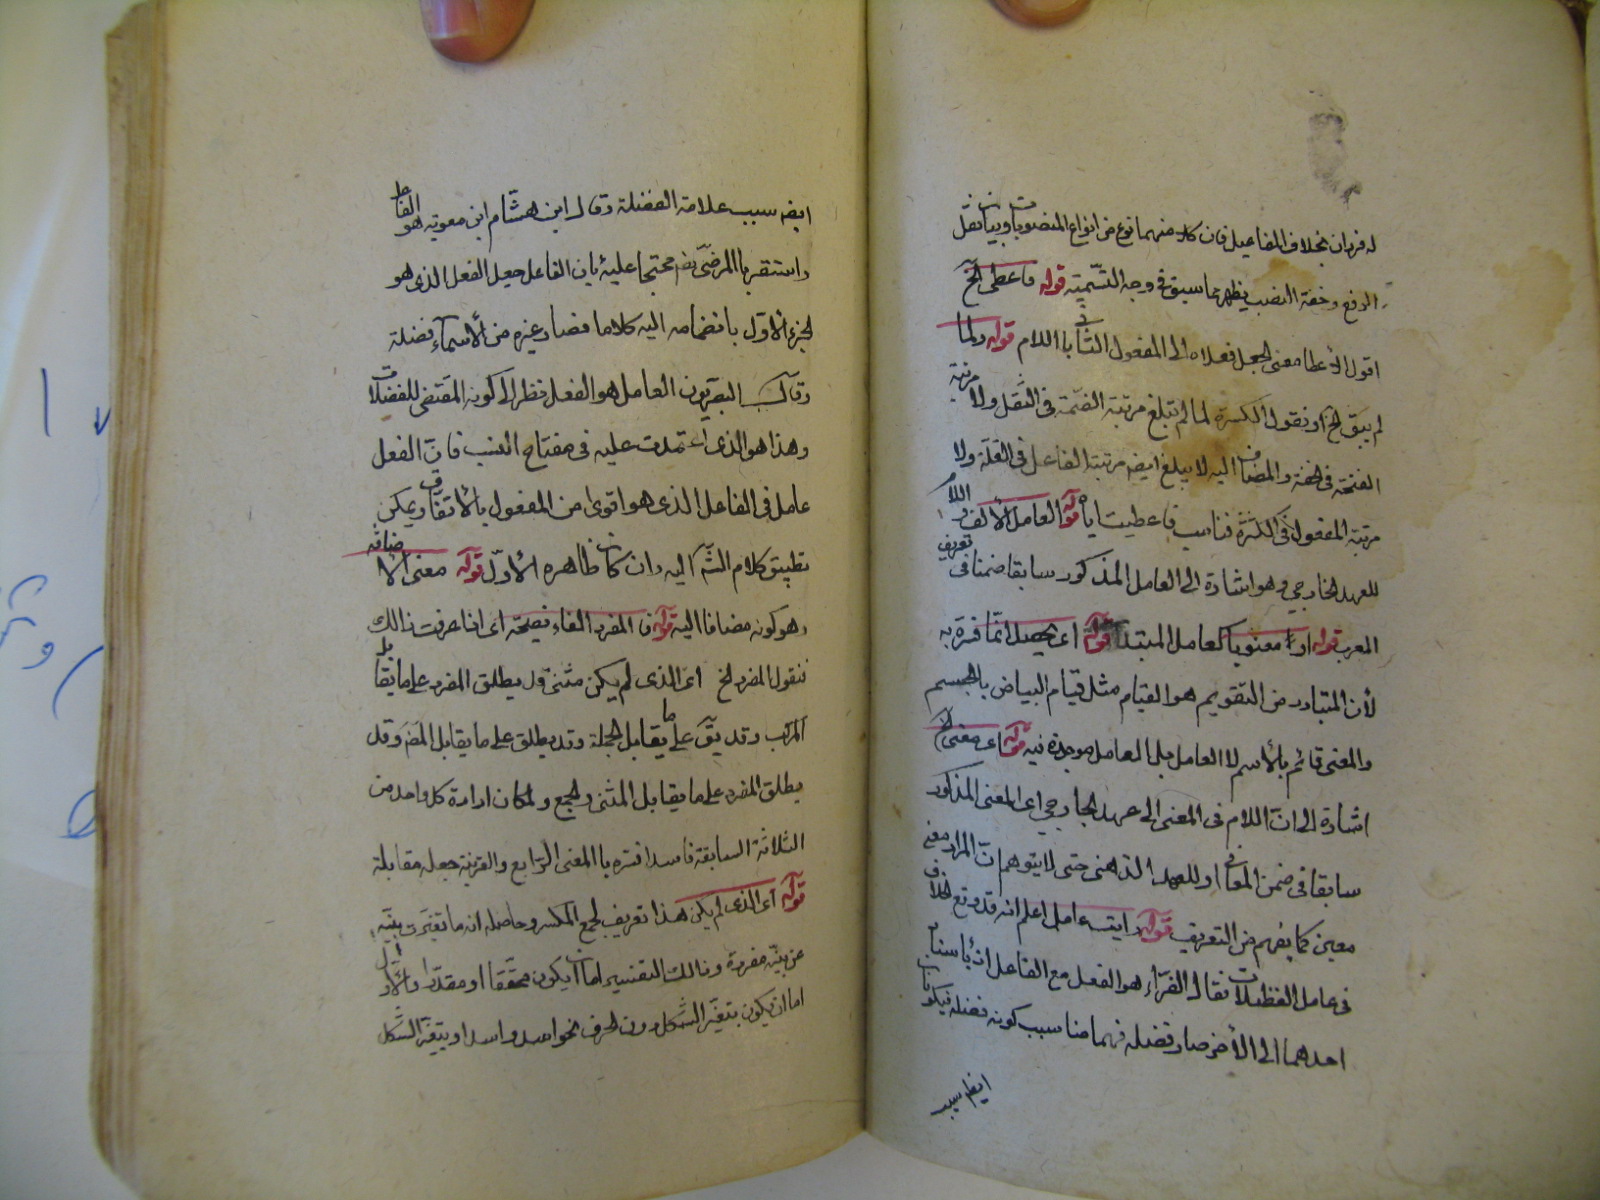 له فردان بخلاف المفاعيل فان كلا منهما نوع من انواع المنصوبات وبيان ثقل
الرفع وخفة النصب يظهر مما سبق فى وجه التسمية قوله فاعطى الخ
اقول الاعطا معنى الجعل فعداه الى المفعول الثانى باللام قوله ولما
لم يبق الخ او نقول الكسرة لما لم تبلغ مرتبة الضمة فى الثقل ولا مرتبة
الفتحة فى الخفة والمضاف اليه لا يبلغ ايضا مرتبة الفاعل فى القلة ولا
مرتبة المفعول فى الكثرة فناسب فاعطيت اياه قوله العامل الالف واللام
للعهد الخارجى وهو اشارة الى العامل المذكور سابقا ضمنا فى تعريف
المعرب قوله او معنويا كعامل المبتدا قوله اى يحصل انما فسره به
لأن المتبادر من التقويم هو القيام مثل قيام البياض بالجسم
والمعنى قائم بالأسم لا العامل بل العامل موجدة فيه قوله اى معنى
اشارة الى ان اللام فى المعنى الى عهد الخارجى اى المعنى المذكور
سابقا فى ضمن المعانى او للعهد الذهنى حتى لا يتوهم ان المراد معنى
معين كما يفهم من التعريف قوله رايت عامل اعلم انه قد وقع الخلاف
فى عامل الفضلات فقال الفراء هو الفعل مع الفاعل اذ باسناد
احدهما الى الأخر صار فضلة فهما صنا سبب كونه فضلة فيكونان
ايضا سبب
ايضا سبب علامة الفضلة وقال ابن هشام ابن معوية هو الفاعل
واستقربه المرضى محتجا عليه بان الفاعل جعل الفعل الذى هو
الجزء الاول بانضمامه اليه كلاما فصار غيره من الأسماء فضلة
وقال البصريون العامل هو الفعل نظرا الى كونه المقتضى للفضلات
وهذا هو الذى اعتمدت عليه فى مفتاح النسب فان الفعل
عامل فى الفاعل الذى هو اقوى من المفعول بالأتفاق ويمكن
تطبيق كلام الش اليه وان كان ظاهره الأول قوله معنى الاضافه
وهو كونه مضافا اليه قوله ف المفرد الفاء فصيحة اى اذا عرفت ذالك
فنقول المفرد الخ اى الذى لم يكن مثنى قد يطلق المفرد على ما يقابل
المركب وقد يق على ما يقابل الجملة وقد يطلق على ما يقابل المضم وقد
يطلق المفرد على ما يقابل المثنى والجمع ولما كان ارادة كل واحد من
الثلاثة السابقة فاسدا فسره بالمعنى الرابع والقرينة جعله مقابلة
قوله اى الذى لم يكن هذا تعريف لجمع المكسر وحاصله انه ما تغيرت بنيه
عن بنية مفرده وذالك التغيير اما ان يكون محققا او مقدرا والأول
اما ان يكون بتغير الشكل دون الحرف نحو اسد واسد او بتغير الشكل